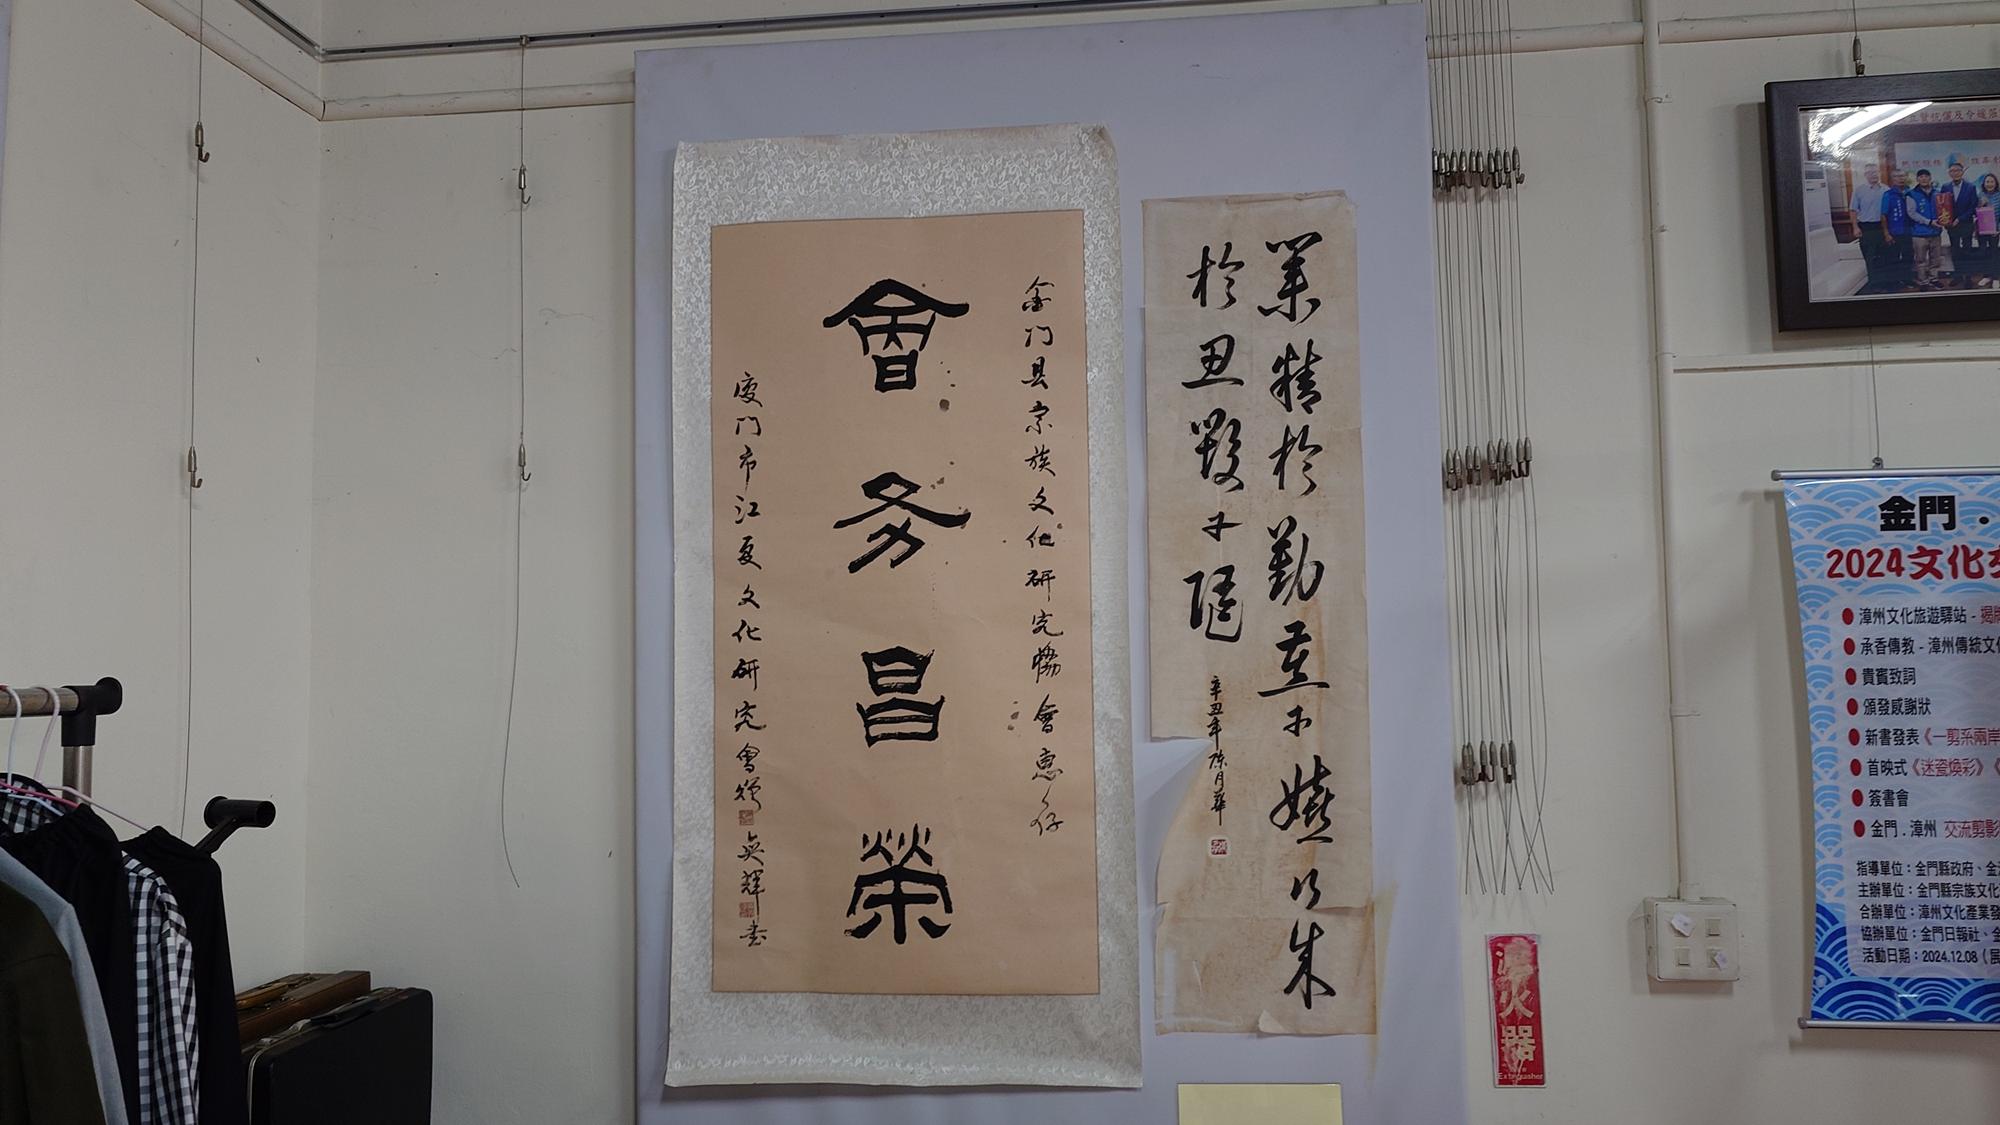 金门县宗族文化研究協會惠存
會务昌荣
廈門市江夏文化研究會贈
奕輝书
業精於勤荒於嬉行成
於思毀于随
辛丑年陈月華
金門．
2024文化交
漳州文化旅遊驛站 - 揭牌
承香傳教 - 漳州傳統文化
貴賓致詞
頒發感謝狀
新書發表《一剪系兩岸
首映式《迷瓷煥彩》《
簽書會
金門．漳州 交流剪影
指導單位：金門縣政府、金
主辦單位：金門縣宗族文化
合辦單位：漳州文化產業發
協辦單位：金門日報社、金
活動日期：2024.12.08（展
滅火器
Extinguisher